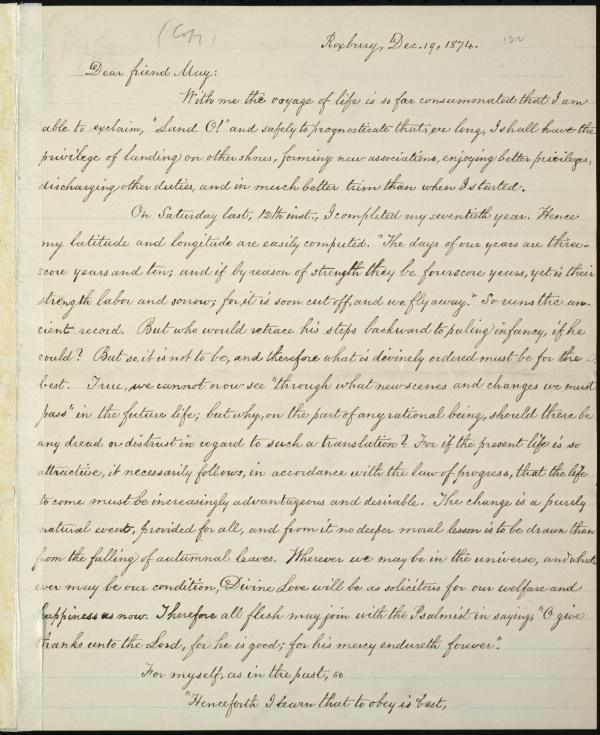 (Copy)
Roxbury, Dec. 19, 1874.
Dear friend May:
With me the voyage of life is so far consummated that I am
able to exclaim, "Land O!" and safely to prognosticate that, ere long, I shall have the
privilege of landing on other shores, forming new associations, enjoying better privileges,
discharging other duties, and in much better trim than when I started.
On Saturday last, 12th inst., I completed my seventieth year. Hence
my latitude and longitude are easily computed. "The days of our years are three-
score years and ten; and if by reason of strength they be fourscore years, yet is their
strength labor and sorrow; for it is soon cut off, and we fly away." So runs the an-
cient record. But who would retrace his steps backward to puling infancy, if he
could? But so it is not to be, and therefore what is divinely ordered must be for the
best. True, we cannot now see "through what new scenes and changes we must
pass" in the future life; but why, on the part of any rational being, should there be
any dread or distrust in regard to such a translation? For if the present life is so
attractive, it necessarily follows, in accordance with the law of progress, that the life
to come must be increasingly advantageous and desirable. The change is a purely
natural event, provided for all, and from it no deeper moral lesson is to be drawn than
from the falling of autumnal leaves. Wherever we may be in the universe, and what-
ever may be our condition, Divine Love will be as solicitous for our welfare and
happiness as now. Therefore all flesh may join with the Psalmist in saying, "O give
thanks unto the Lord, for he is good; for his mercy endureth forever".
For myself, as in the past, so
"Henceforth I learn that to obey is best,